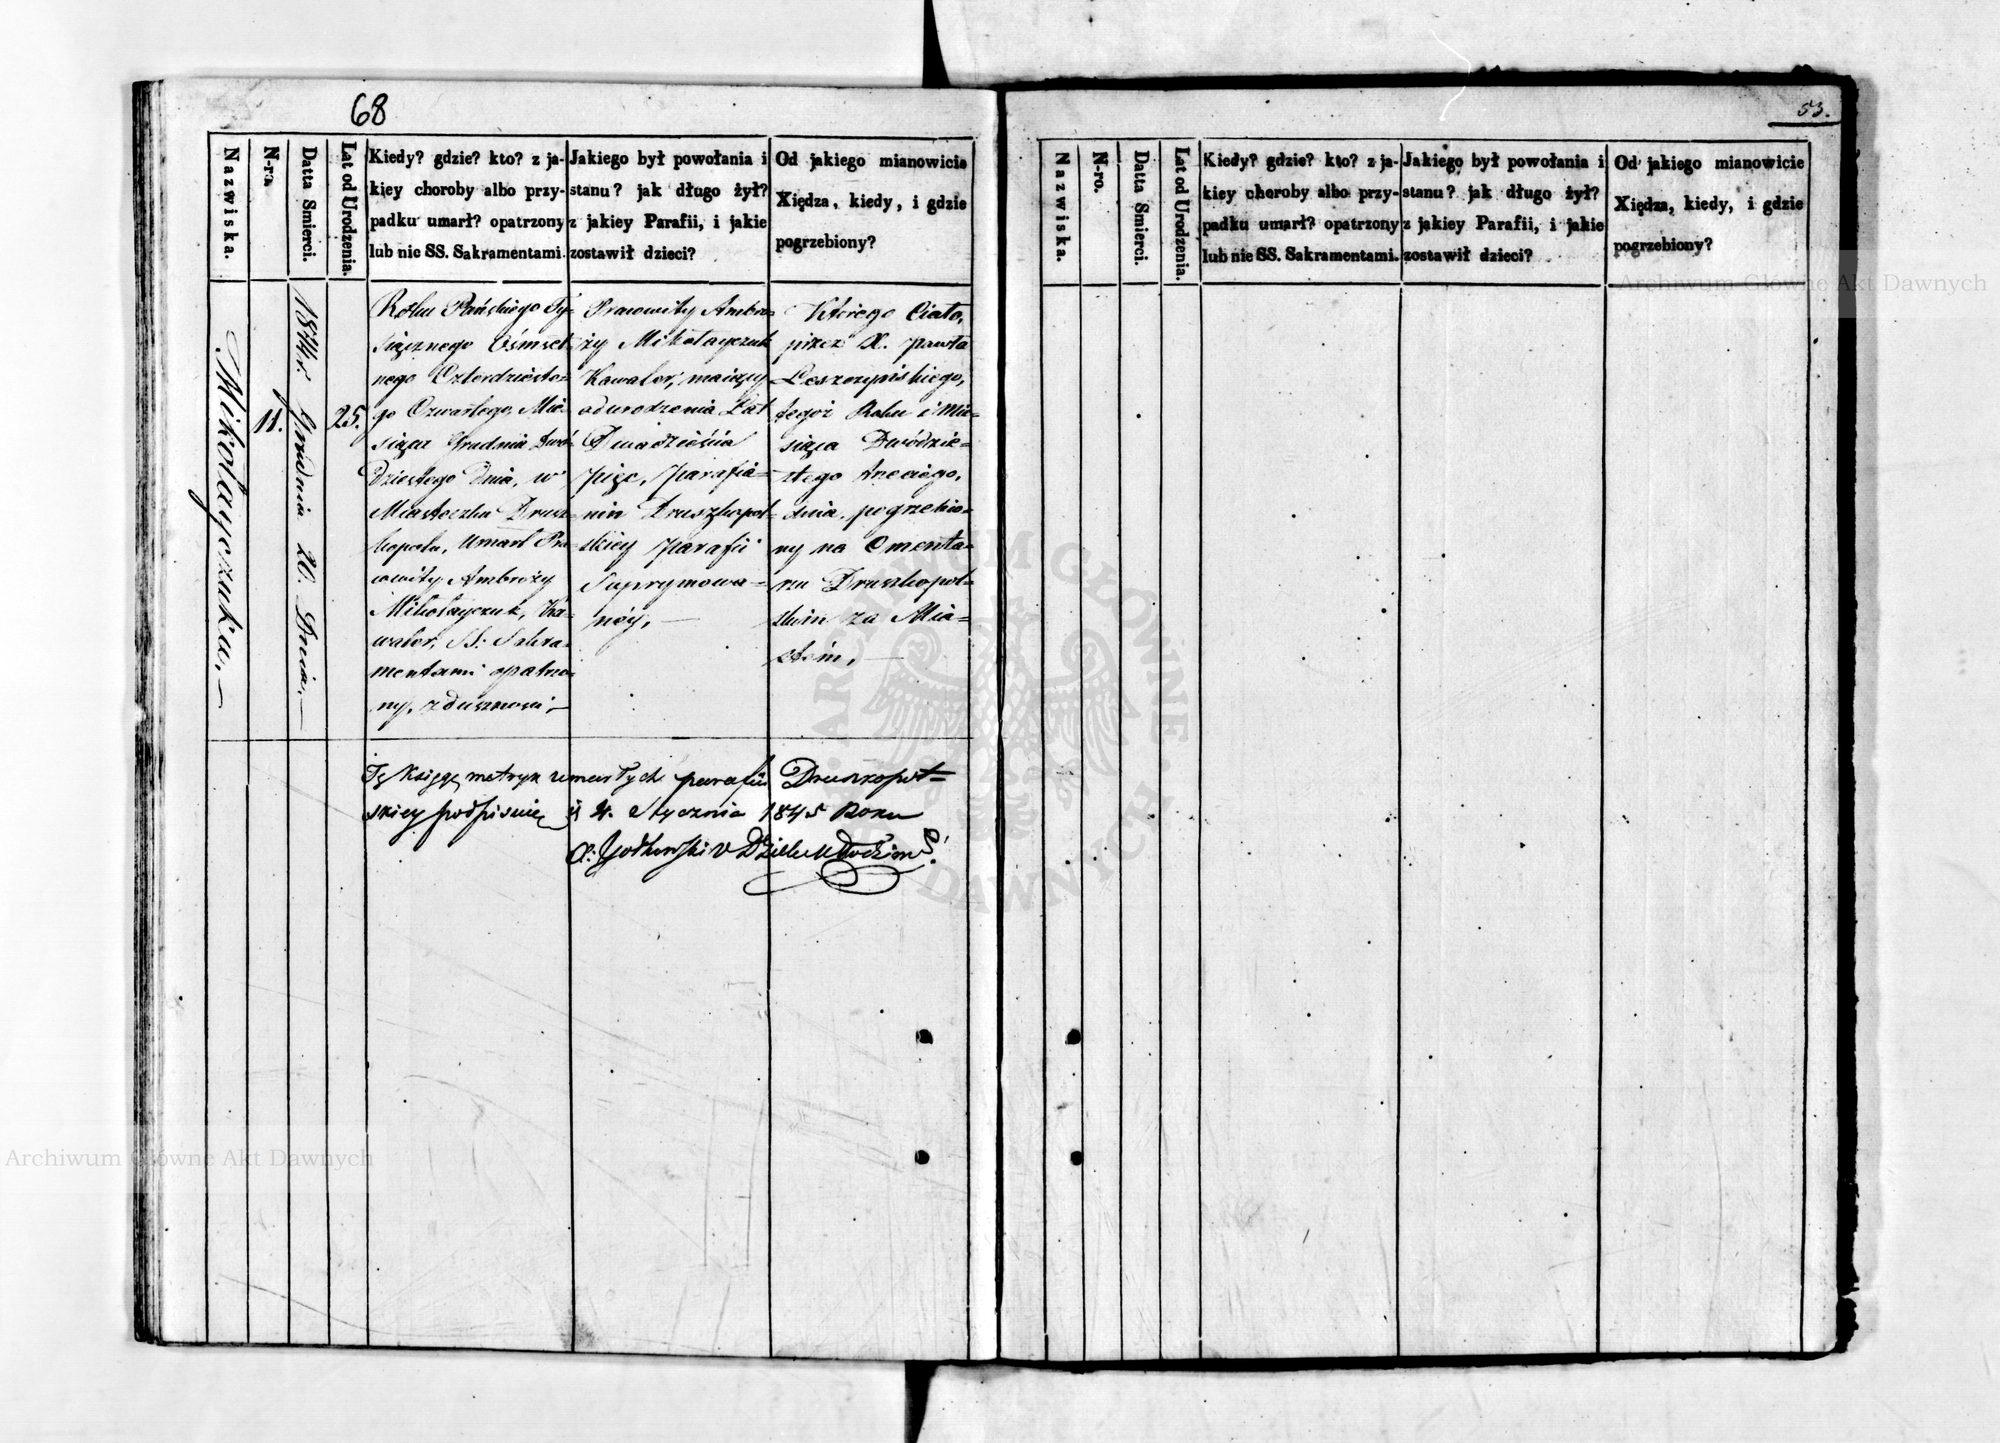 68
Nazwiska.
N-ro.
Datta Smierci.
Lat od Urodzenia.
Kiedy? gdzie? kto? z ja-
kiey choroby albo przy-
padku umarł? opatrzony
lub nie SS. Sakramentami.
Jakiego był powołania i
stanu? jak długo żył?
z jakiey Parafii, i jakie
zostawił dzieci?
Od jakiego mianowicie
Xiędza, kiedy, i gdzie
pogrzebiony?
Mikołayczuka.
11.
1844r. Grudnia 20. Dnia.
25.
Roku Pańskiego Ty-
siącznego Ośmset-
nego Czterdziesto-
go Czwartego, Mie-
siąca Grudnia Dwó-
dziestego Dnia, w
Miasteczku Drusz-
kopolu, Umarł Pra-
cowity Ambroży
Mikołayczuk, Ka-
waler, SS. Sakra-
mentami opatrzo-
ny, z duszności,
Pracowity Ambro-
ży Mikołayczuk
Kawaler, maiący
od urodzenia Lat
Dwadzieścia
pięć, parafia-
nin Druszkopol-
skiey parafii
Suprymowa-
néy,
Którego Ciało,
przez X. Pawła
Leszczyńskiego,
tegoż Roku i Mie-
siąca Dwódzie-
stego trzeciego,
dnia, pogrzebio-
ny na Cmenta-
rzu Druszkopol-
skim za Mia-
stém,
Tę Księgę metryk umarłych parafii Druszkopol-
skiey podpisuię 4. Stycznia 1845 Roku
53.
Nazwiska.
N-ro.
Datta Smierci.
Lat od Urodzenia.
Kiedy? gdzie? kto? z ja-
kiey choroby albo przy-
padku umarł? opatrzony
lub nie SS. Sakramentami.
Jakiego był powołania i
stanu? jak długo żył?
z jakiey Parafii, i jakie
zostawił dzieci?
Od jakiego mianowicie
Xiędza, kiedy, i gdzie
pogrzebiony?
Archiwum Główne Akt Dawnych
Archiwum Główne Akt Dawnych
ARCHIWUM GŁÓWNE AKT DAWNYCH